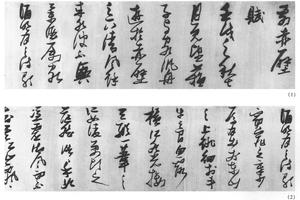 前赤壁
賦
壬戌之秋七
月既望蘇
子與客泛舟
遊於赤壁
之下清風徐
來水波不興
舉酒屬客
誦明月之詩歌
(1)
誦明月之詩歌
窈窕之章少
焉月出於東山
之上徘徊於斗
牛之間白露
橫江水光接
天縱一葦之
所如凌萬頃之
茫然浩浩乎
馮虛御風而不
(2)